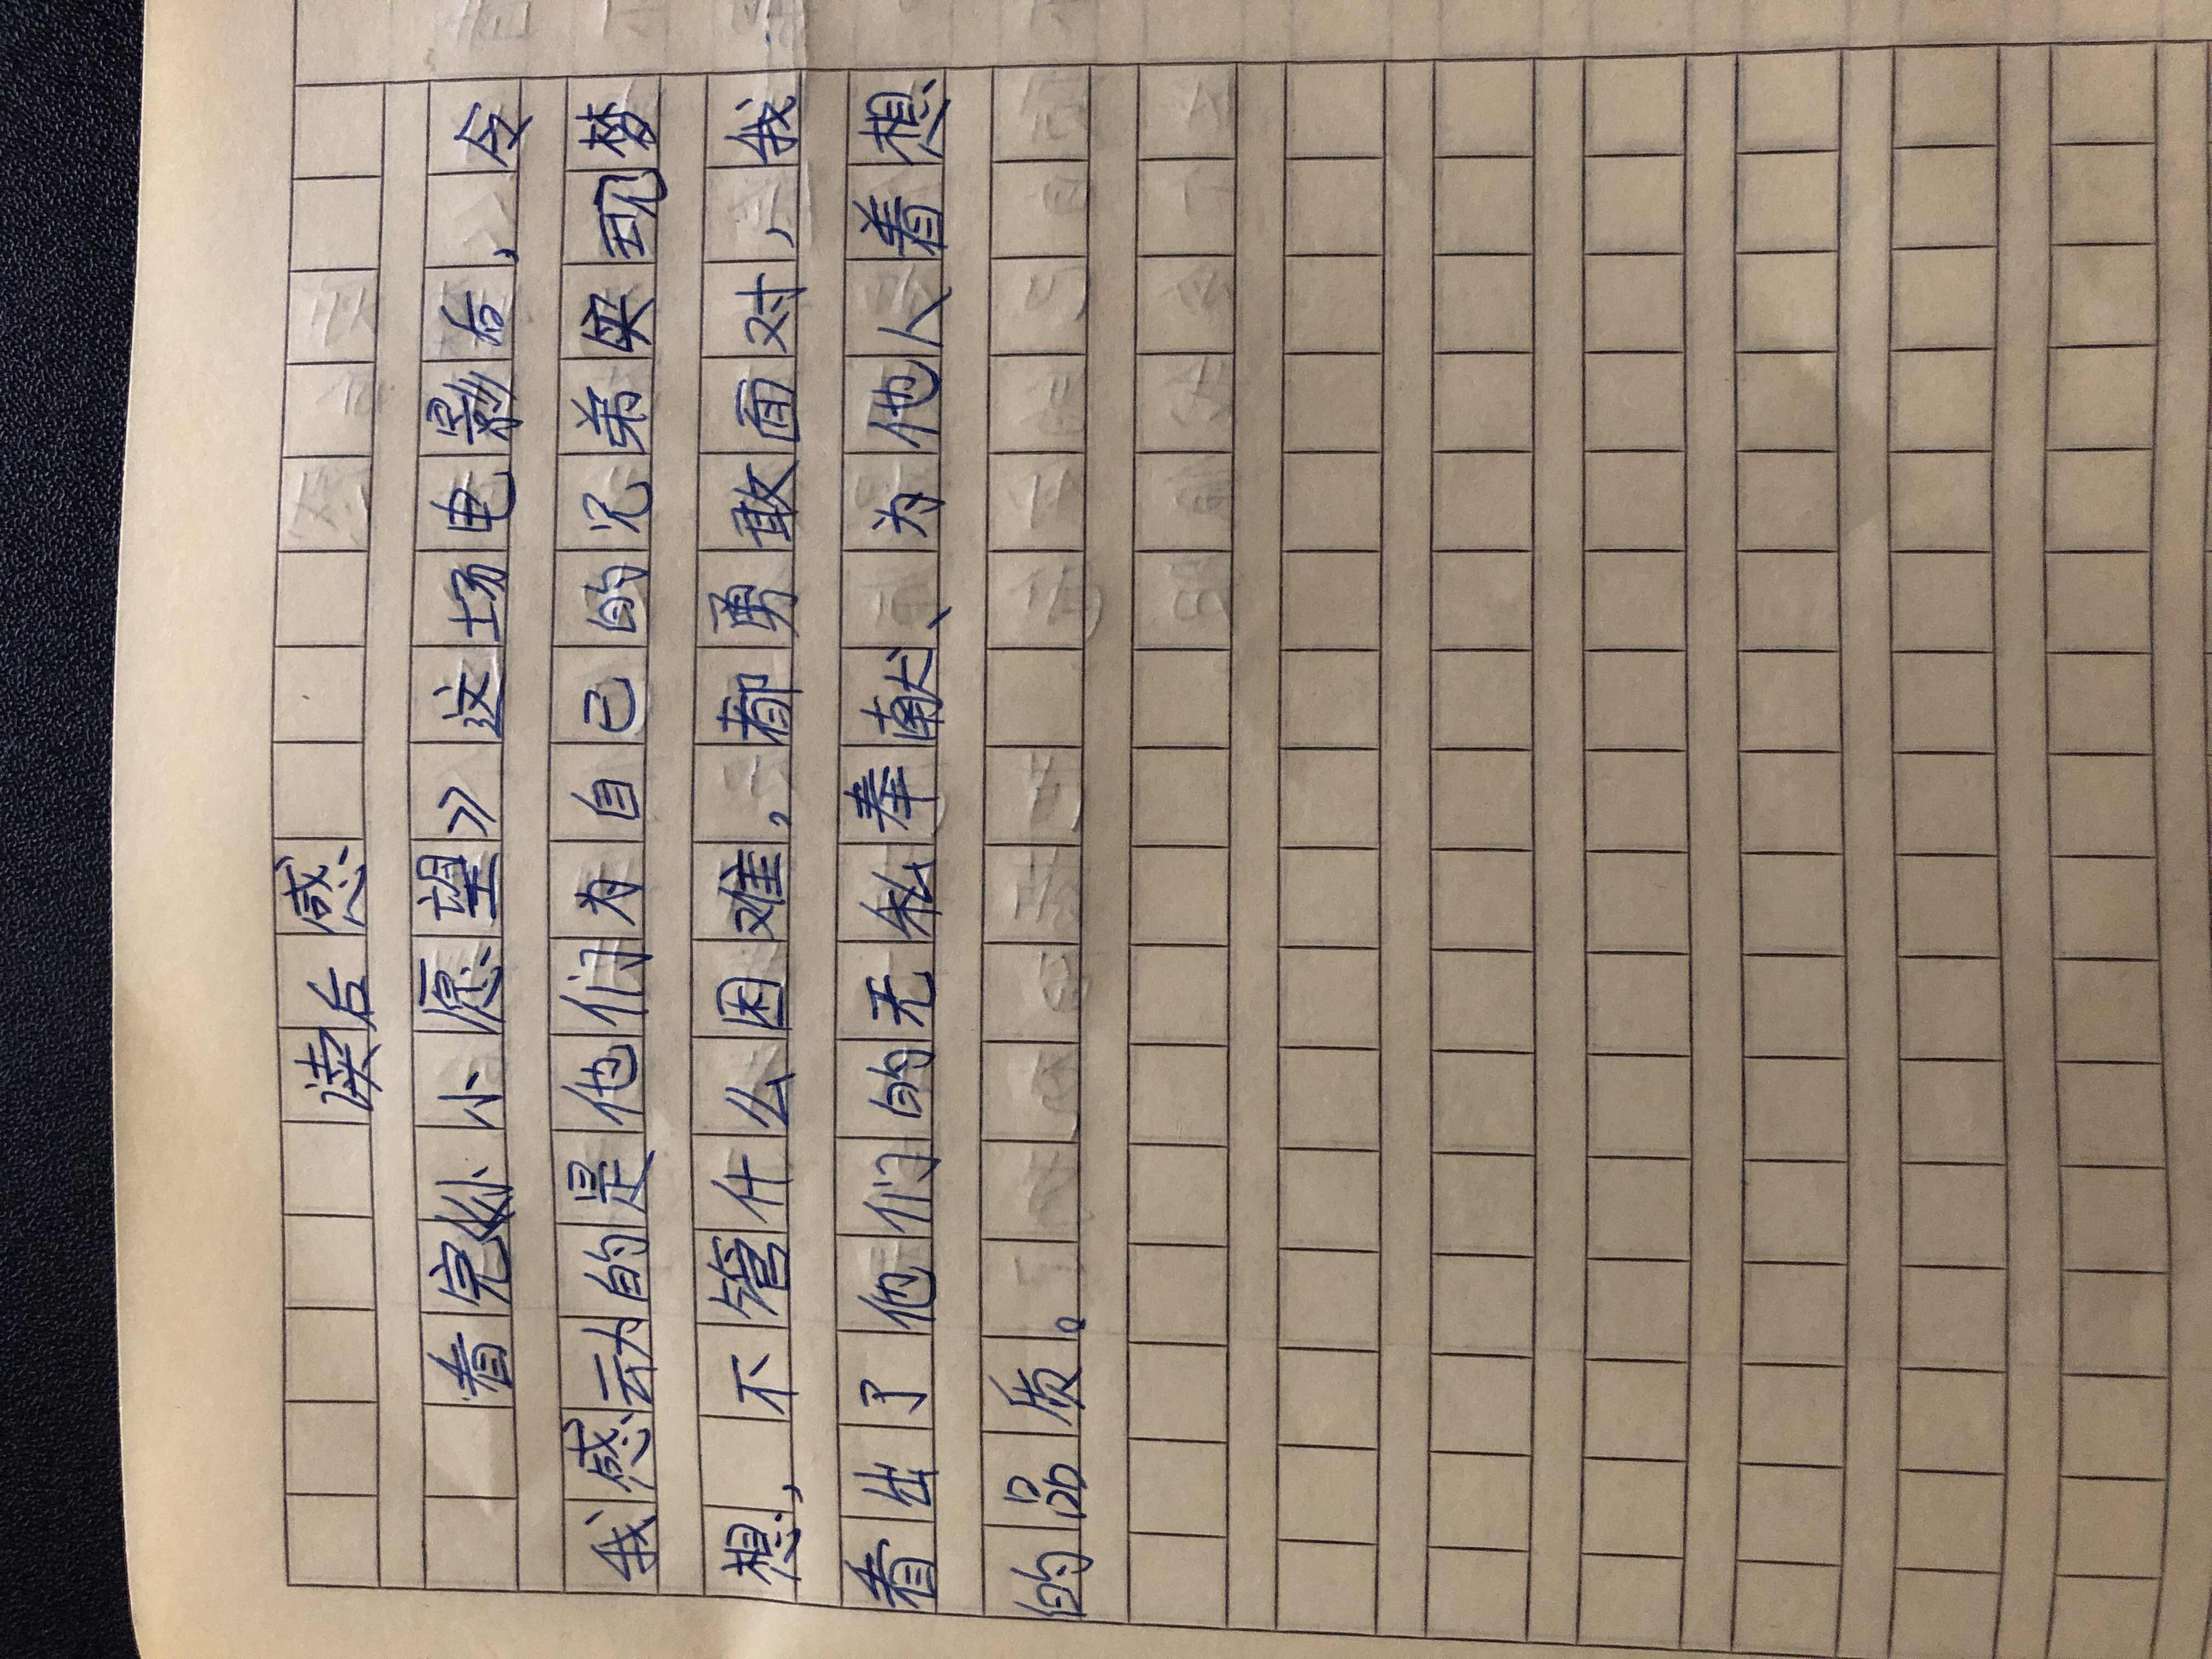 读后感
看完《小小愿望》这场电影后，令
我感动的是他们为自己的兄弟实现梦
想，不管什么困难。都勇敢面对，我
看出了他们的无私奉献、为他人着想
的品质。